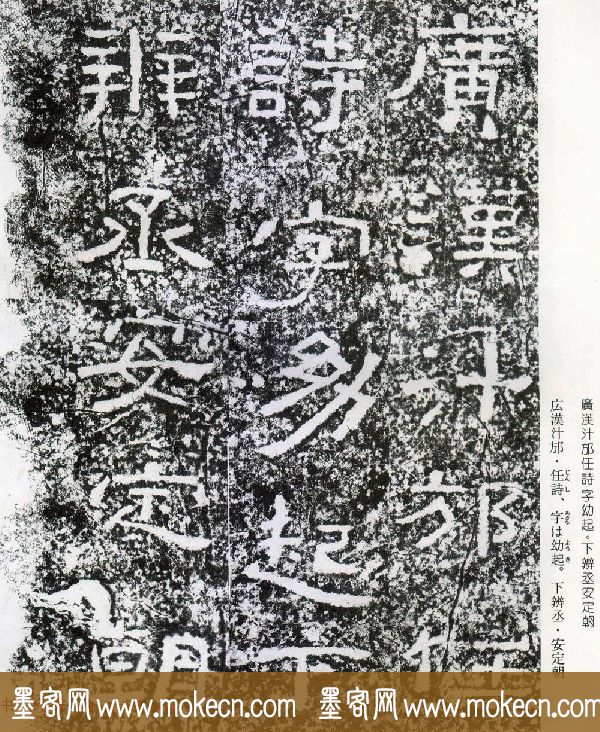 廣漢汁邡任
詩字幼起下
辨丞安定朝
廣漢汁邡任詩字幼起。下辨丞安定朝
広漢汁邡・任詩、字は幼起。下辨丞・安定朝
墨客网 www.mokecn.com 墨客网 www.mokecn.com